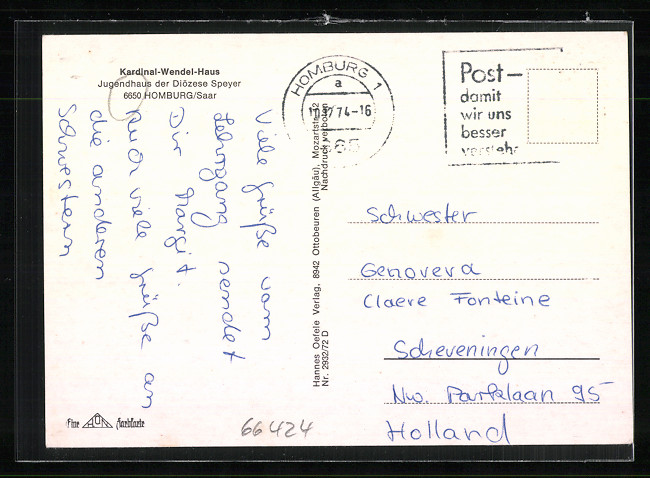 Kardinal-Wendel-Haus
Jugendhaus der Diözese Speyer
6650 HOMBURG/Saar
Viele Grüße vom
Lehrgang sendet
Dir Margit.
Auch viele Grüße an
die anderen
Schwestern
Hannes Oefele Verlag, 8942 Ottobeuren (Allgäu), Mozartstr. 2
Nr. 2932/72 D
Nachdruck verboten
HOMBURG 1
a
74-16
665
Post-
damit
wir uns
besser
verstehn
Schwester
Genovera
Claere Fonteine
Scheveningen
Nw. Parklaan 95
Holland
Eine
Farbkarte
66424